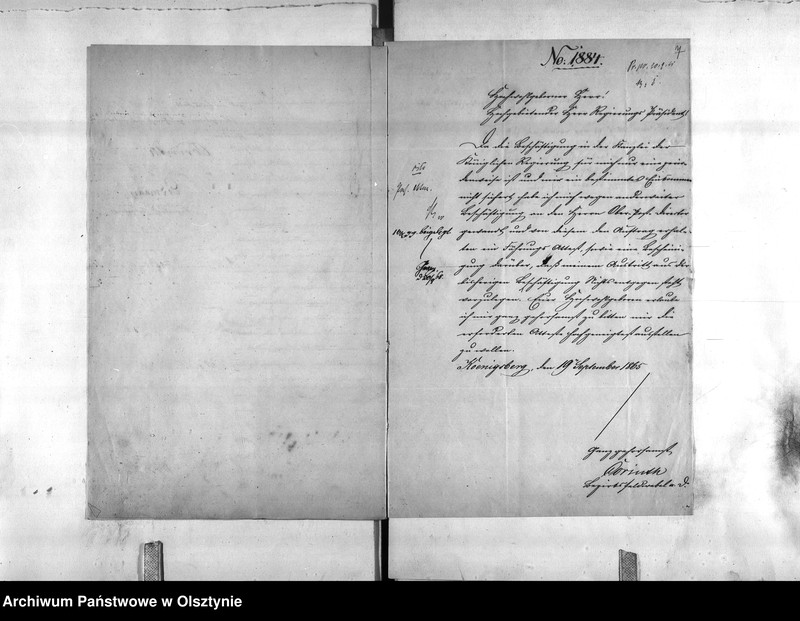 No. 1884.
Hochwohlgeborner Herr!
Hochgebietender Herr Regierungs Präsident!
Da die Beschäftigung in der Kanzlei der
Königlichen Regierung für mich nur eine
ist und mir ein bestimmtes Einkommen
nicht sichert, habe ich mich wegen anderweiter
Beschäftigung an den Herrn Ober Post Director
gewandt, und von diesem den Auftrag erhal-
ten ein Führungs Attest, sowie eine Beschei-
gung darüber, daß meinem Austritt aus der
bisherigen Beschäftigung Nichts entgegen steht,
vorzulegen. Euer Hochwohlgeboren erlaube
ich mir ganz gehorsamst zu bitten mir die
erforderlichen Atteste hochgeneigtest ausstellen
zu wollen.
Koenigsberg, den 19 September 1865
Ganz gehorsamst
Corinth
Bezirksfeldwebel a. D.
Archiwum Państwowe w Olsztynie